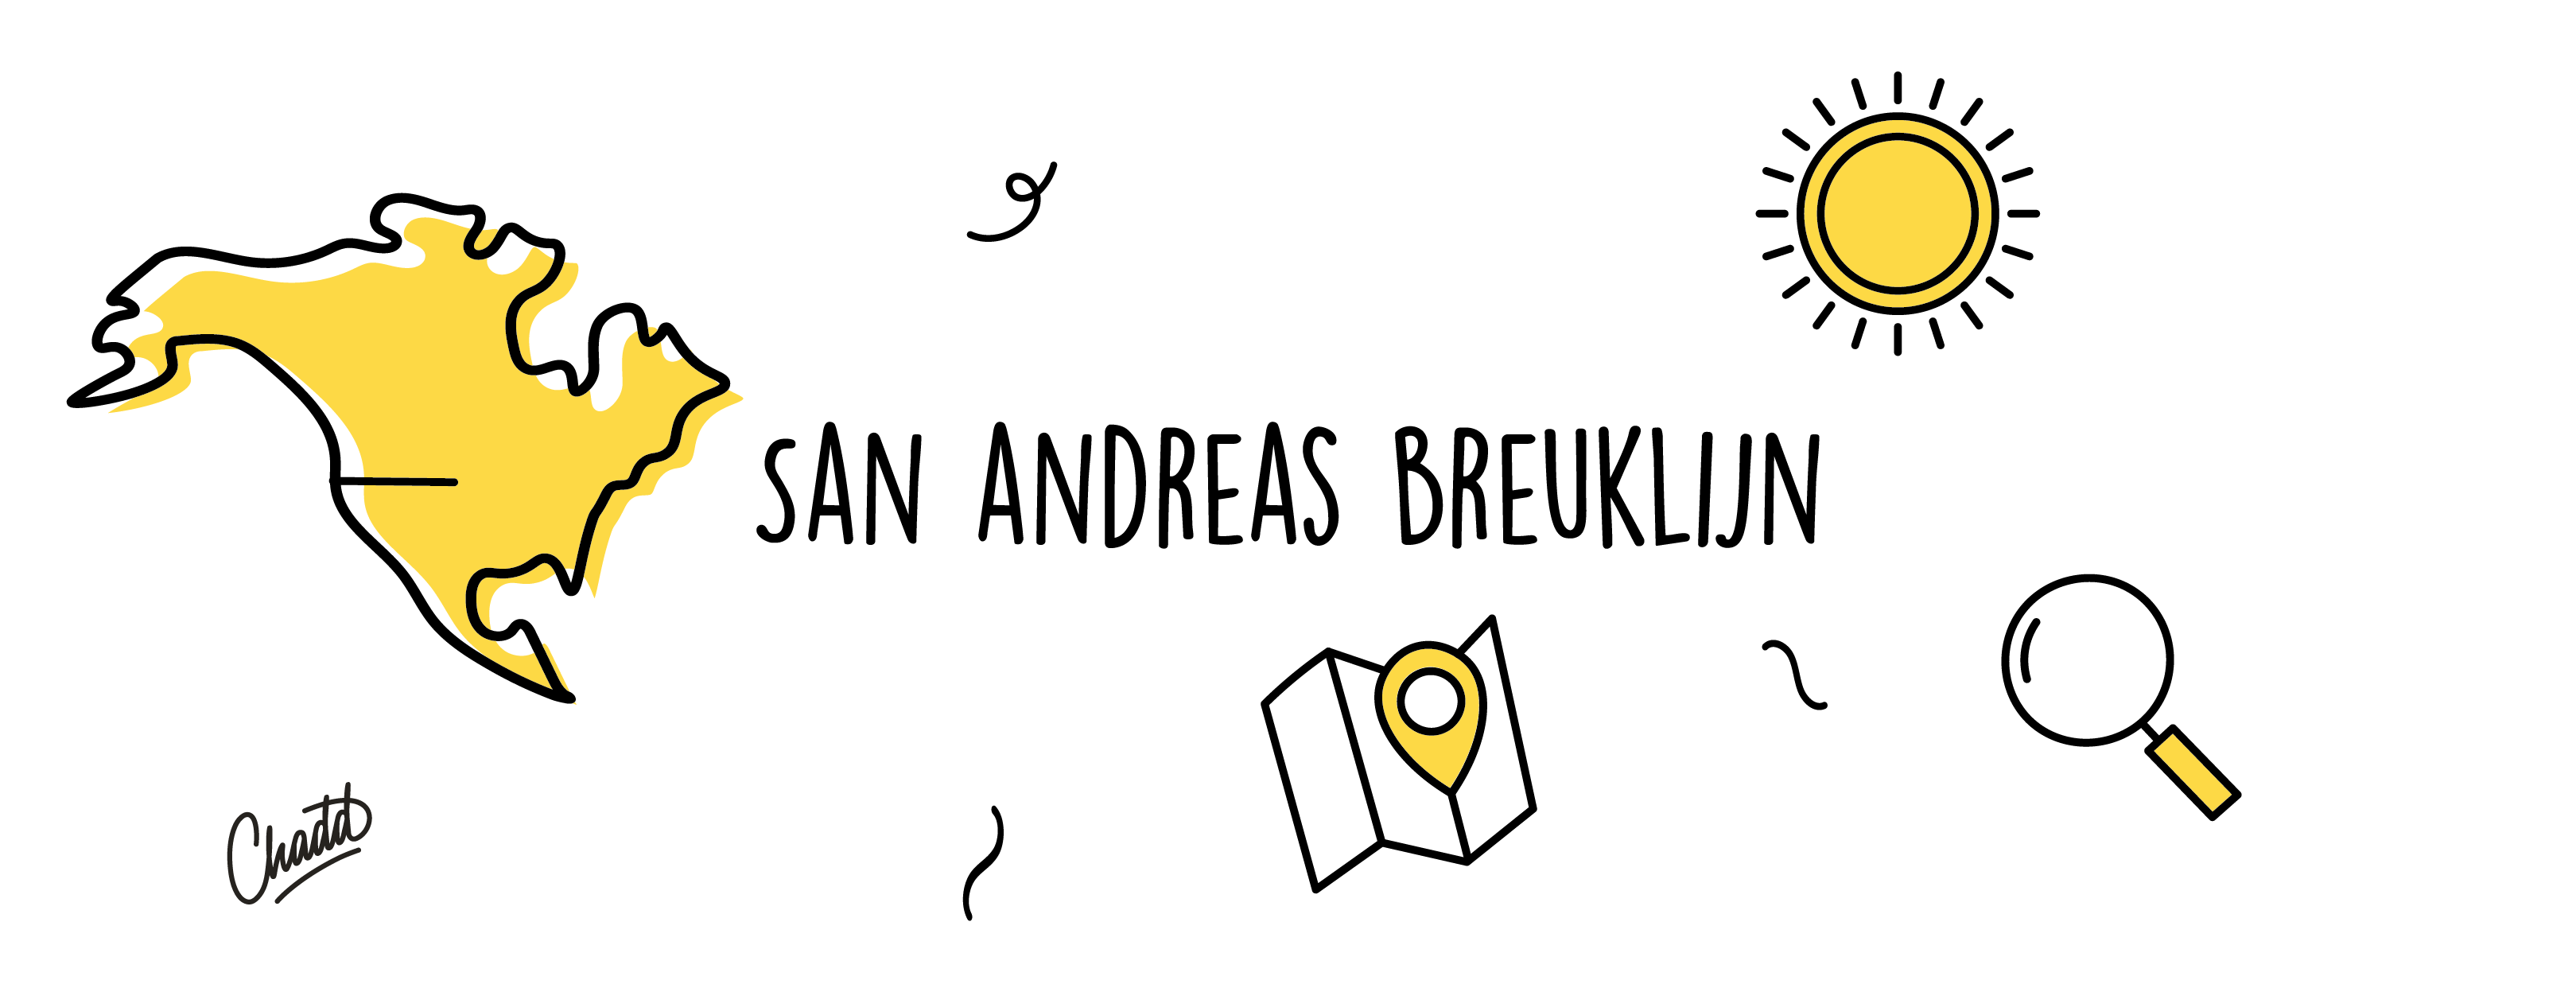 SAN ANDREAS BREUKLIJN
Chadd